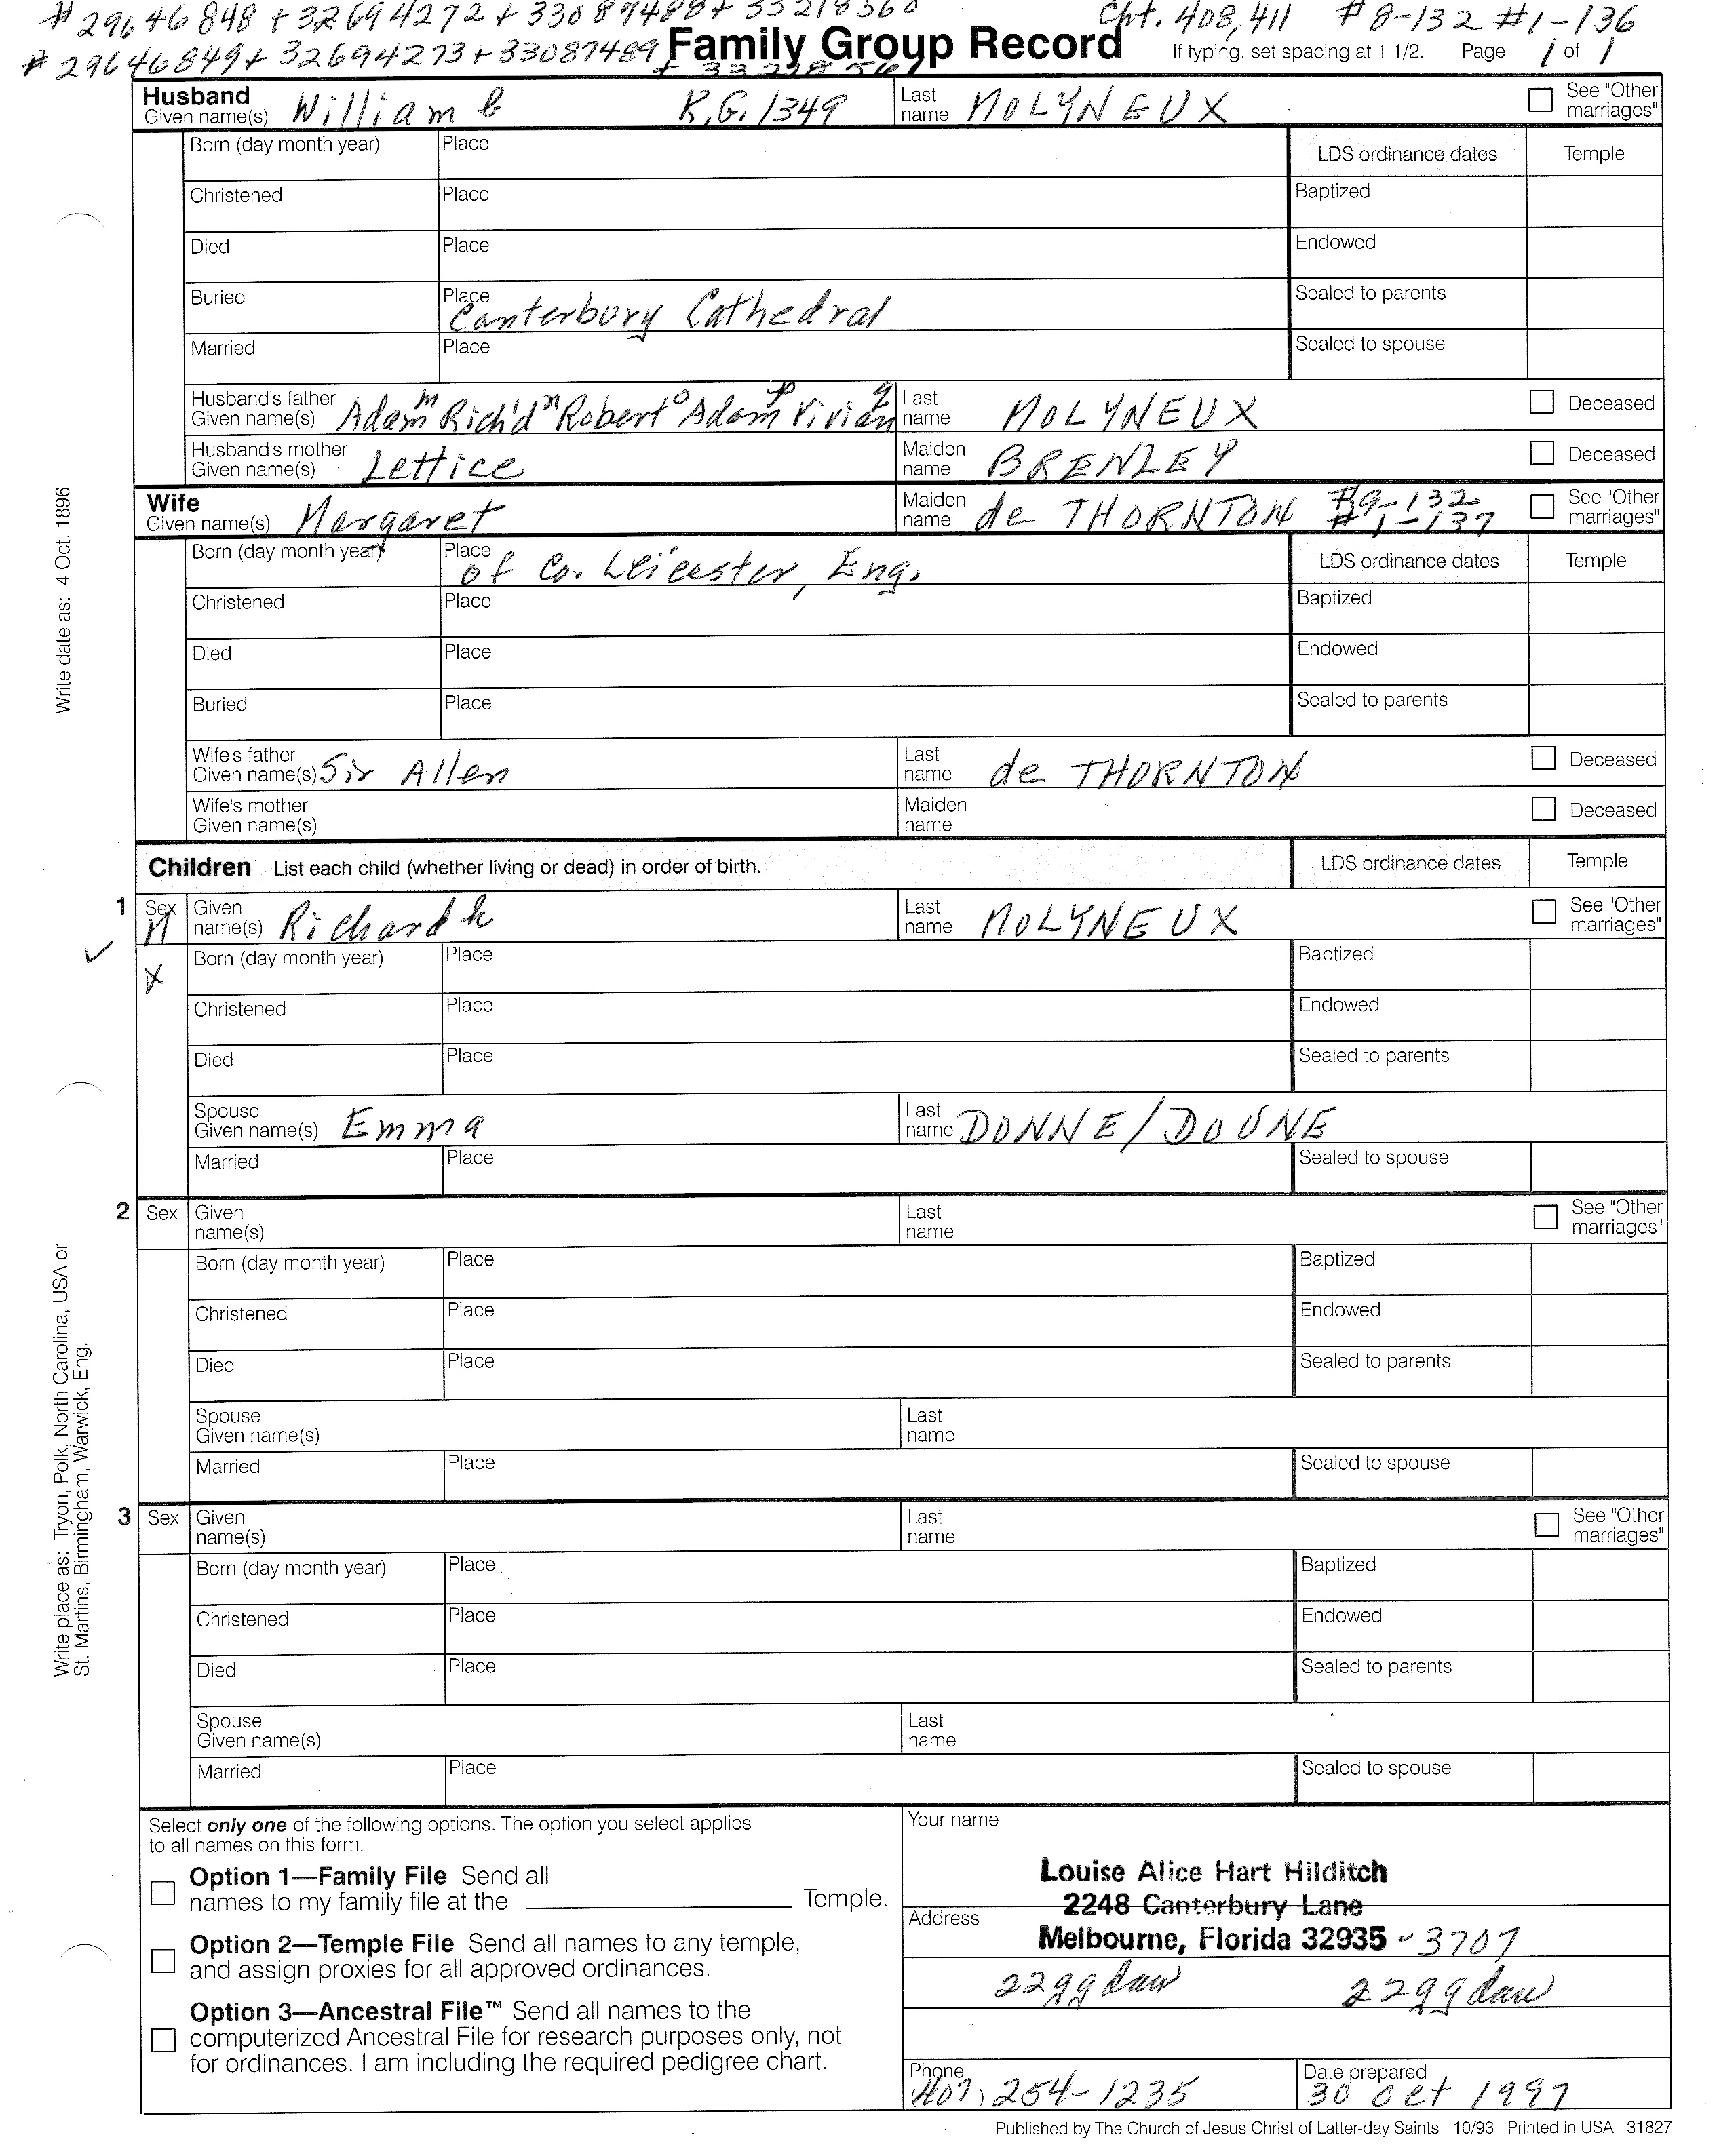 # 29646848 + 32694272 + 33087488 + 33218560 Cht. 408,411 #8-132 #1-136
# 29646849 + 32694273 + 33087489 Family Group Record If typing, set spacing at 1 1/2. Page 1 of 1
Husband Given name(s) William R.G. 1349 Last name MOLYNEUX See "Other marriages"
Born (day month year) Place LDS ordinance dates Temple
Christened Place Baptized
Died Place Endowed
Buried Place Canterbury Cathedral Sealed to parents
Married Place Sealed to spouse
Husband's father Given name(s) Adam m Rich'd n Robert o Adam p Vivian q Last name MOLYNEUX Deceased
Husband's mother Given name(s) Lettice Maiden name BRENLEY Deceased
Wife Given name(s) Margaret Maiden name de THORNTON #9-132 #1-137 See "Other marriages"
Born (day month year) Place of Co. Leicester, Eng. LDS ordinance dates Temple
Christened Place Baptized
Died Place Endowed
Buried Place Sealed to parents
Wife's father Given name(s) Sir Allen Last name de THORNTON Deceased
Wife's mother Given name(s) Maiden name Deceased
Children List each child (whether living or dead) in order of birth. LDS ordinance dates Temple
1 Sex M Given name(s) Richard k Last name MOLYNEUX See "Other marriages"
X Born (day month year) Place Baptized
Christened Place Endowed
Died Place Sealed to parents
Spouse Given name(s) Emma Last name DONNE/DOUNE
Married Place Sealed to spouse
2 Sex Given name(s) Last name See "Other marriages"
Born (day month year) Place Baptized
Christened Place Endowed
Died Place Sealed to parents
Spouse Given name(s) Last name
Married Place Sealed to spouse
3 Sex Given name(s) Last name See "Other marriages"
Born (day month year) Place Baptized
Christened Place Endowed
Died Place Sealed to parents
Spouse Given name(s) Last name
Married Place Sealed to spouse
Write date as: 4 Oct. 1896
Write place as: Tryon, Polk, North Carolina, USA or
St. Martins, Birmingham, Warwick, Eng.
Select only one of the following options. The option you select applies
to all names on this form.
Option 1—Family File Send all
names to my family file at the ____ Temple.
Option 2—Temple File Send all names to any temple,
and assign proxies for all approved ordinances.
Option 3—Ancestral File™ Send all names to the
computerized Ancestral File for research purposes only, not
for ordinances. I am including the required pedigree chart.
Your name
Louise Alice Hart Hilditch
2248 Canterbury Lane
Address
Melbourne, Florida 32935 -3707
22ggdau 22ggdau
Phone (407) 254-1235 Date prepared 30 Oct 1997
Published by The Church of Jesus Christ of Latter-day Saints 10/93 Printed in USA 31827